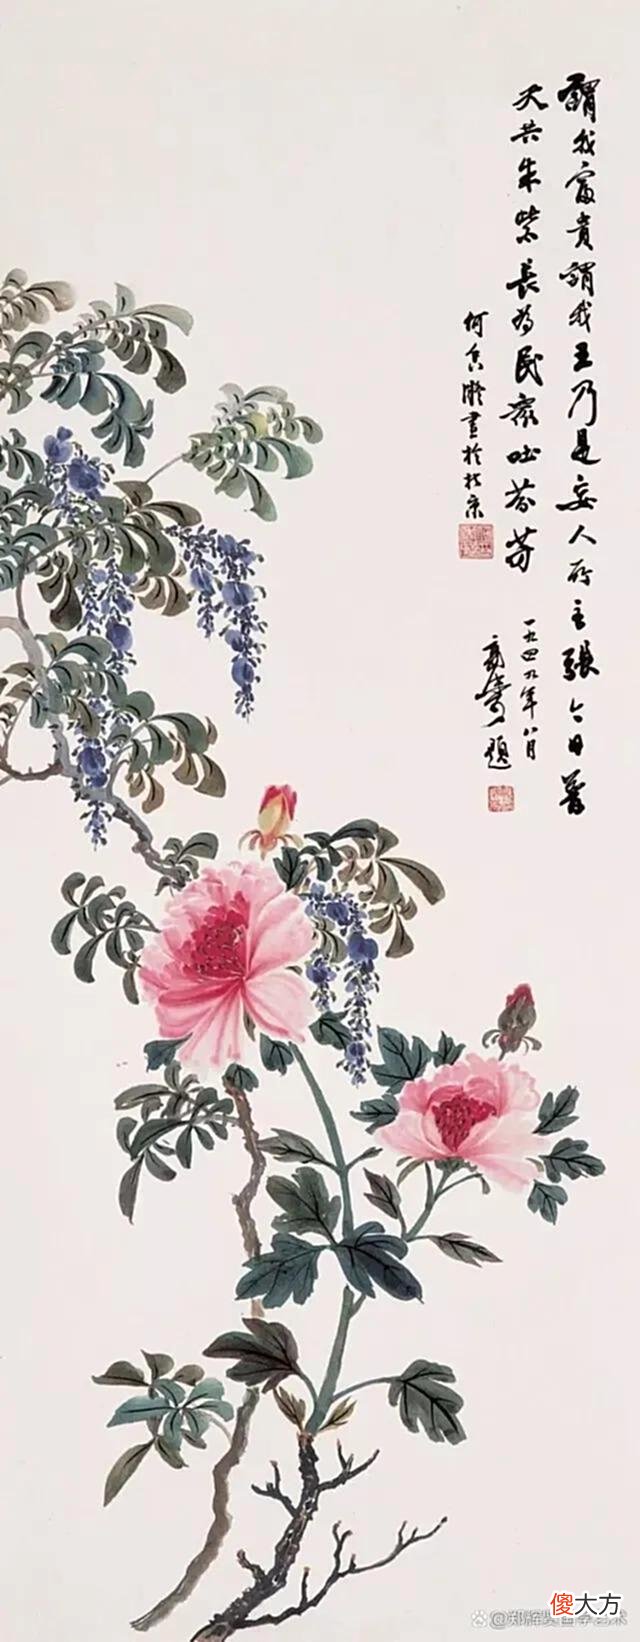 謂我富貴謂我王乃是妄人所主張今日普
天共朱紫長為民衆吐芬芳
何香凝畫於北京
一九四九年八月
題
傻大方